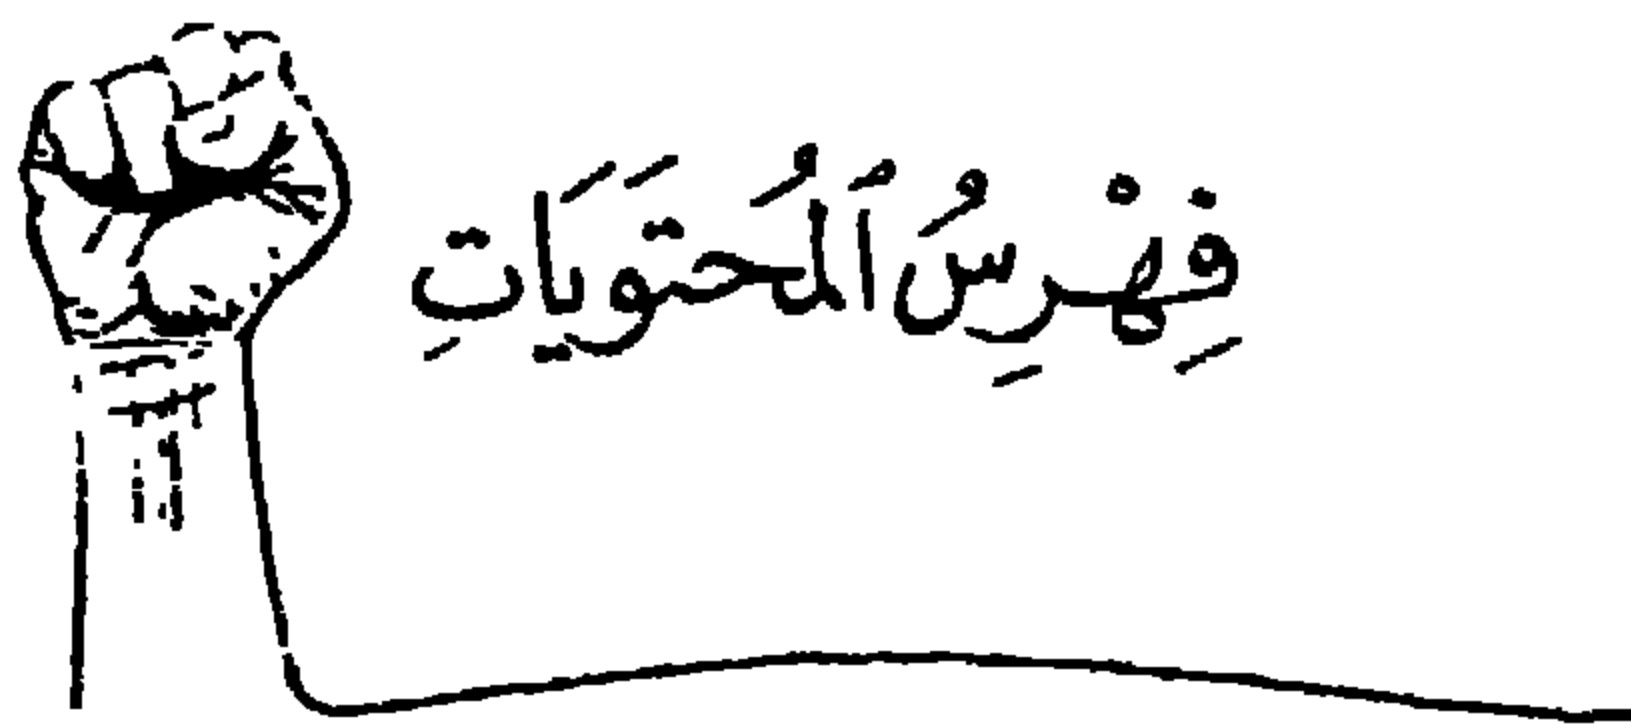 فِهْرِسُ ٱلْمُحْتَوَيَاتِ